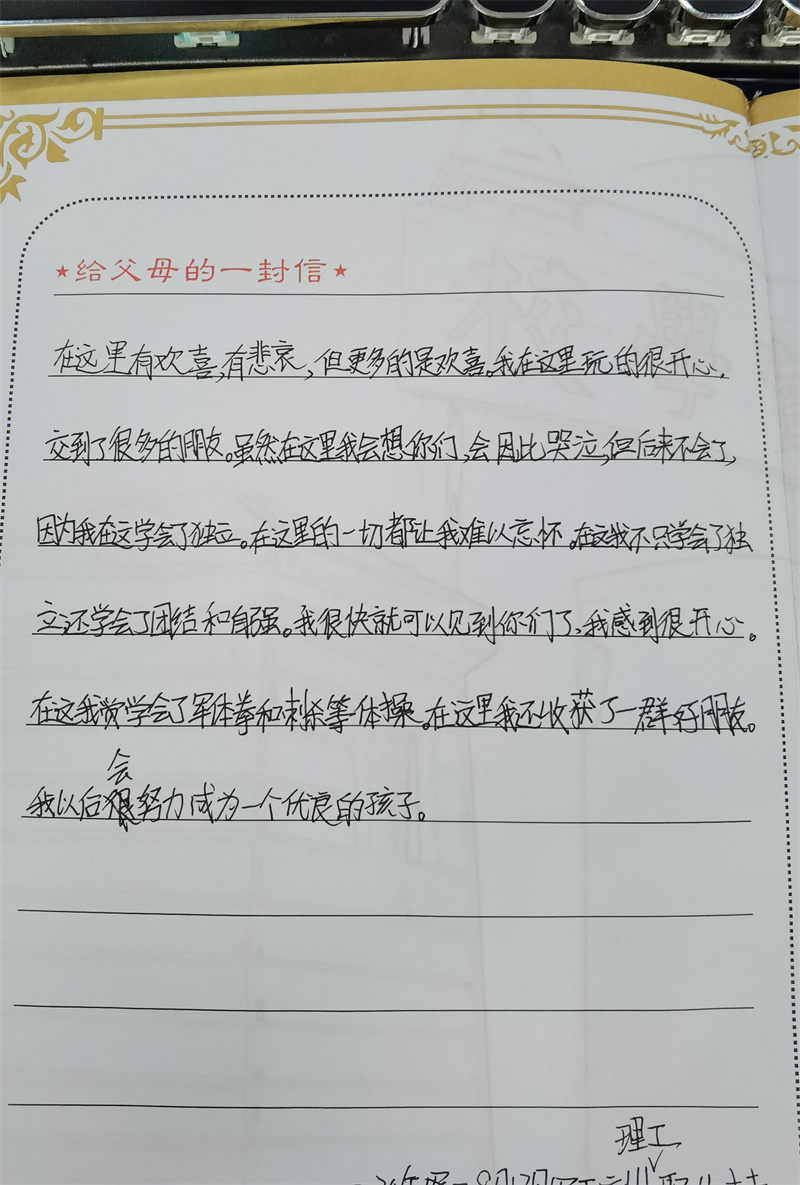 ★给父母的一封信★
在这里有欢喜,有悲哀,但更多的是欢喜。我在这里玩的很开心,
交到了很多的朋友。虽然在这里我会想你们,会因此哭泣,但后来不会了,
因为我在这学会了独立。在这里的一切都让我难以忘怀。在这我不只学会了独
立还学会了团结和自强。我很快就可以见到你们了、我感到很开心。
在这我学会了军体拳和刺杀等体操。在这里我还收获了一群好朋友。
会
我以后努力成为一个优良的孩子。
理工